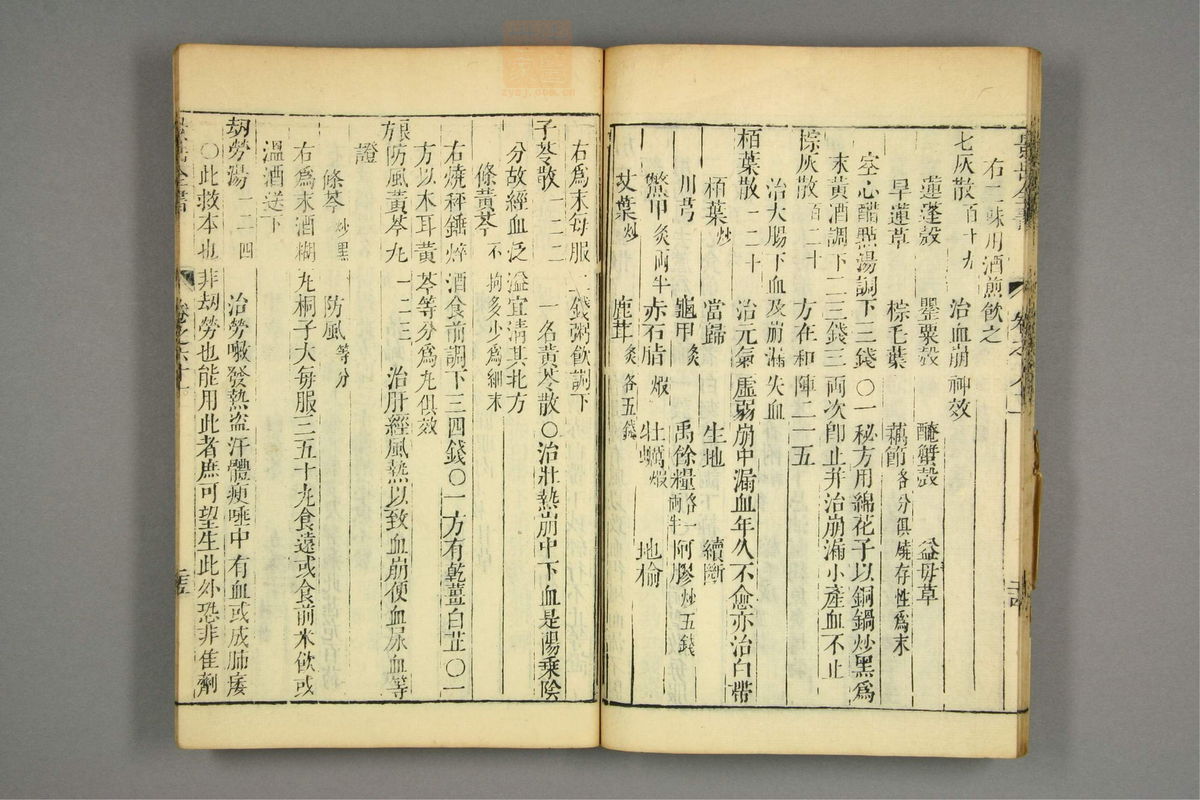 右二味用酒煎飲之
七灰散百十九 治血崩神效
蓮蓬殼 罌粟殼 醃蟹殼 益母草
旱蓮草 棕毛葉 藕節各分俱燒存性爲末
空心醋點湯調下三錢〇一秘方用綿花子以銅鍋炒黑爲
末黃酒調下二三錢三兩次卽止幷治崩漏小產血不止
棕灰散百二十 方在和陣二一五
治大腸下血及崩漏失血
栢葉散一二十 治元氣虛弱崩中漏血年久不愈亦治白帶
栢葉炒 當歸 生地 續斷
川芎 龜甲炙 禹餘糧各一兩半 阿膠炒五錢
鱉甲炙兩半 赤石脂煅 牡蠣煅 地榆
艾葉炒 鹿茸炙各五錢
右爲末每服二錢粥飲調下
子芩散一二二 一名黃芩散〇治壯熱崩中下血是陽乘陰
分故經血泛溢宜淸其北方
條黃芩不拘多少爲細末
右燒秤錘焠酒食前調下三四錢〇一方有乾薑白芷〇一
方以木耳黃芩等分爲丸俱效
防風黃芩丸一二三 治肝經風熱以致血崩便血尿血等
證
條芩炒黑 防風等分
右爲末酒糊丸桐子大每服三五十丸食遠或食前米飲或
溫酒送下
劫勞湯一二四 治勞嗽發熱盜汗體瘦唾中有血或成肺痿
〇此救本也非劫勞也能用此者庶可望生此外恐非隹劑